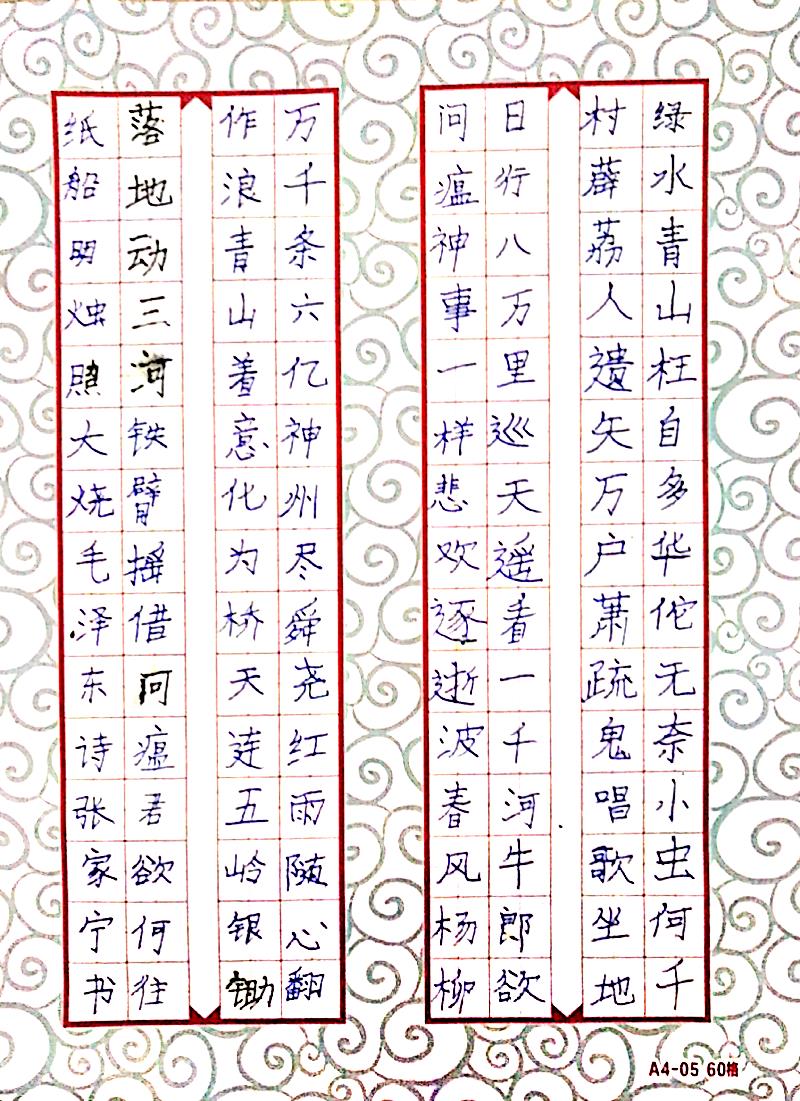 绿水青山枉自多华佗无奈小虫何千
村薜荔人遺矢万户萧疏鬼唱歌坐地
日行八万里巡天遥看一千河牛郎欲
问瘟神事一样悲欢逐逝波春风杨柳
万千条六亿神州尽舜尧红雨随心翻
作浪青山着意化为桥天连五岭银锄
落地动三河铁臂摇借问瘟君欲何往
纸船明烛照大烧毛泽东诗张家宁书
A4-05 60格